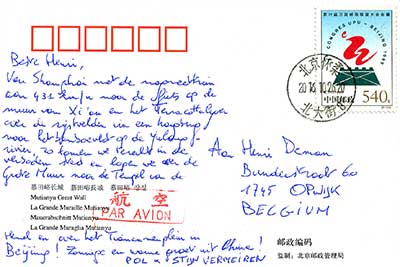 Beste Henri,
Van Shanghai met de magneettrein
aan 431 km/u naar de fiets op de
muur van Xi'an en het Terracottaleger
over de rijstvelden en een hogbrug
naar het bamboevlot op de Yulong-
rivier, zo komen we terecht in de
verboden stad en lopen we over de
Grote Muur naar de Tempel van de
慕田峪长城 慕田峪長城
Mutianyu Great Wall
La Grande Muraille Mutianyu
Mauerabschnitt Mutianyu
La Grande Maraglia Mutianyu
航空
PAR AVION
Hemel en over het Tiananmenplein in
Beijing! Zonnige en warme groet uit China!
POL & STIJN VERMEIREN
CONGRES UPU BEIJING 1999
中国邮政
540分
北京怀柔
2016.10.26.20
北大街
Aan Henri Deman
Bundestraat 60
1745 OPWIJK
BELGIUM
邮政编码
监制:北京邮政管理局